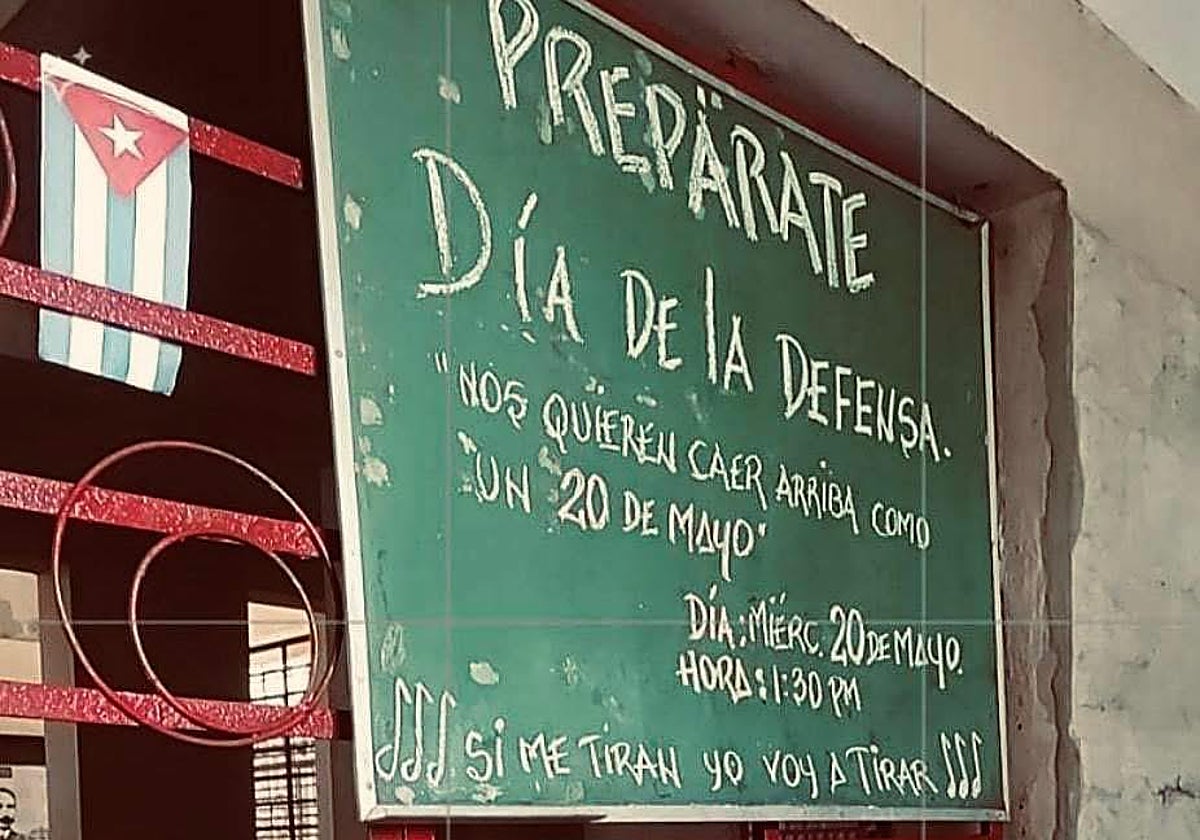 PREPÄRATE
DíA DE lA DEFENSA.
"NOS QUIEREN CAER ARRIBA COMO
"UN 20 DE MAYO"
DÍA: MIÉRC. 20 DE MAYO.
HORA: 1:30 PM
♪♪♪ Si ME TiRAN yo VOY A TiRAR ♪♪♪